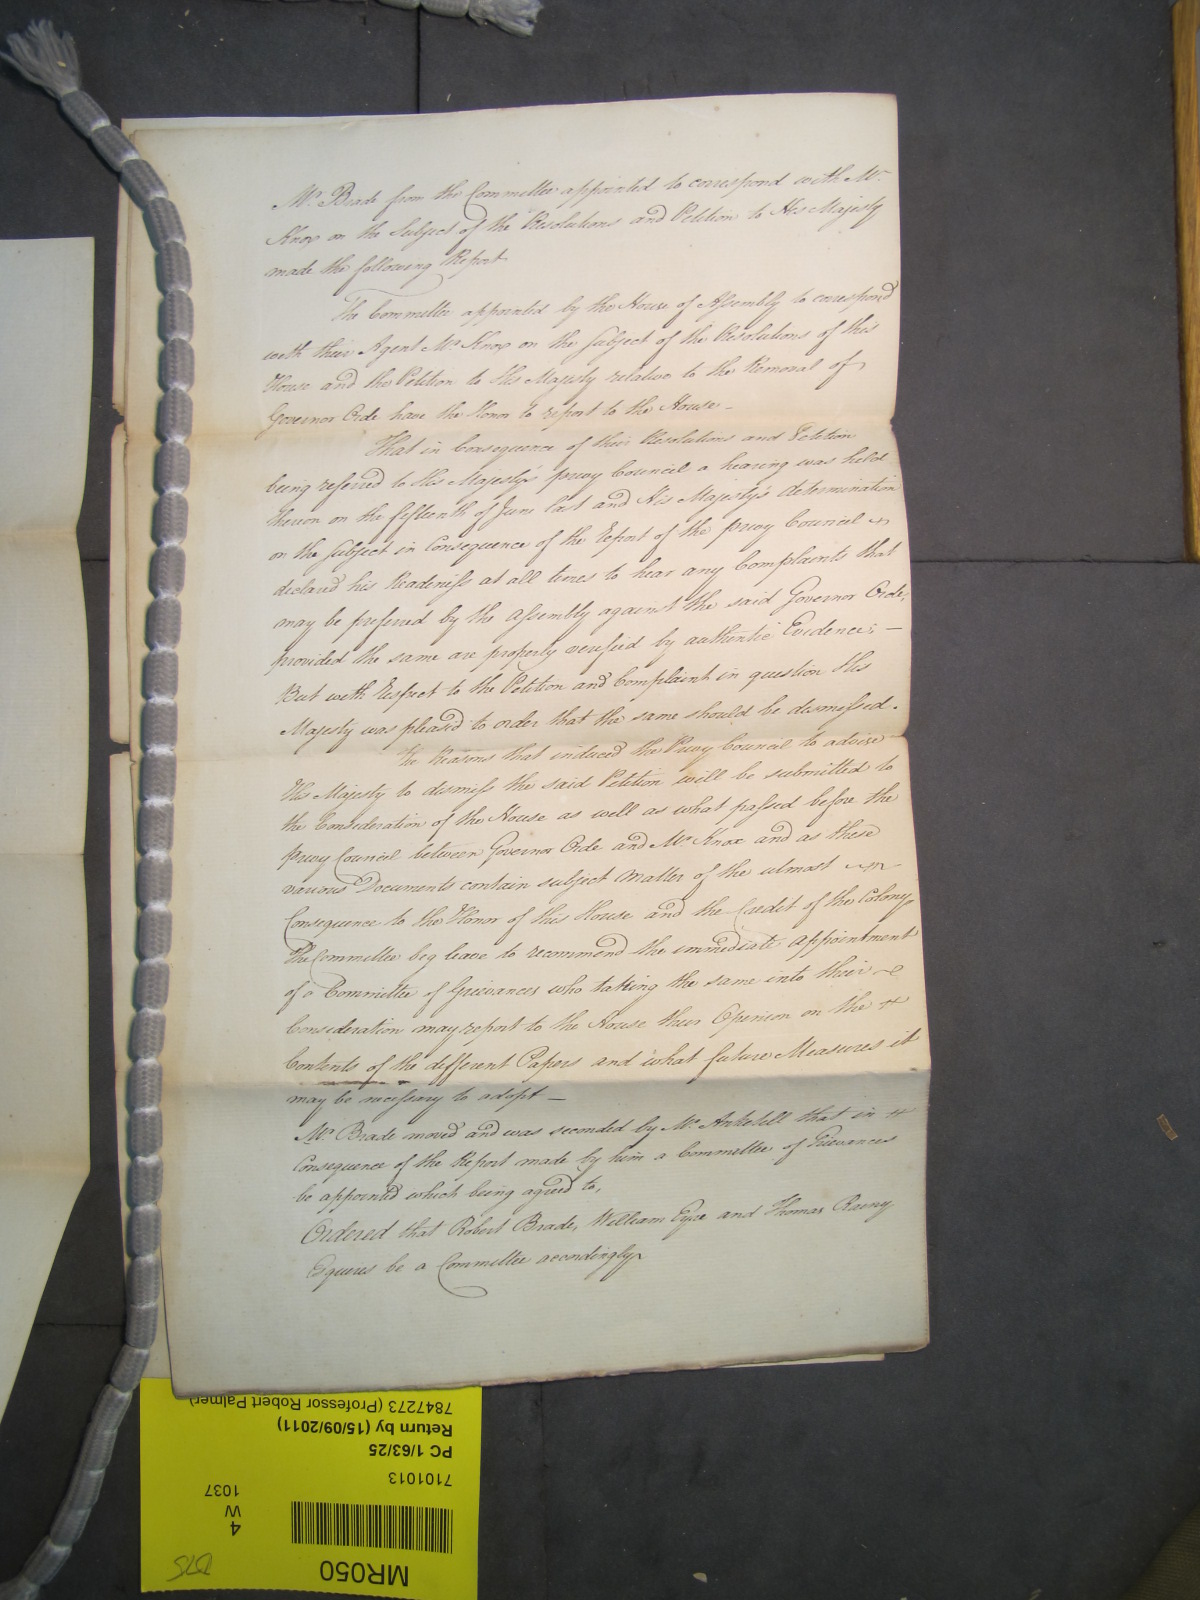 Mr. Brade from the Committee appointed to correspond with Mr.
Knox on the Subject of the Resolutions and Petition to His Majesty
made the following Report
The Committee appointed by the House of Assembly to correspond
with their Agent Mr. Knox on the Subject of the Resolutions of this
House and the Petition to His Majesty relative to the Removal of
Governor Orde have the Honor to report to the House –
That in Consequence of their Resolutions and Petition
being referred to His Majesty's privy Council a hearing was held
thereon on the fifteenth of June last and His Majesty's determination
on the Subject in Consequence of the Report of the privy Council
declared his Readiness at all times to hear any Complaints that
may be preferred by the Assembly against the said Governor Orde,
provided the same are properly verified by authentic Evidence; –
But with Respect to the Petition and Complaint in question His
Majesty was pleased to order that the same should be dismissed.
The Reasons that induced the Privy Council to advise
His Majesty to dismiss the said Petition will be submitted to
the Consideration of the House as well as what passed before the
privy Council between Governor Orde and Mr. Knox and as these
various Documents contain subject Matter of the utmost
Consequence to the Honor of this House and the Credit of the Colony
The Committee beg leave to recommend the immediate appointment
of a Committee of Grievances who taking the same into their
Consideration may report to the House their Opinion on the
Contents of the different Papers and what future Measures it
may be necessary to adopt –
Mr. Brade moved and was seconded by Mr. Anketell that in
Consequence of the Report made by him a Committee of Grievances
be appointed which being agreed to,
Ordered that Robert Brade, William Eyre and Thomas Rainy
Esquires be a Committee accordingly
MR050
4
W
1037
7101013
PC 1/63/25
Return by (15/09/2011)
7847273 (Professor Robert Palmer)